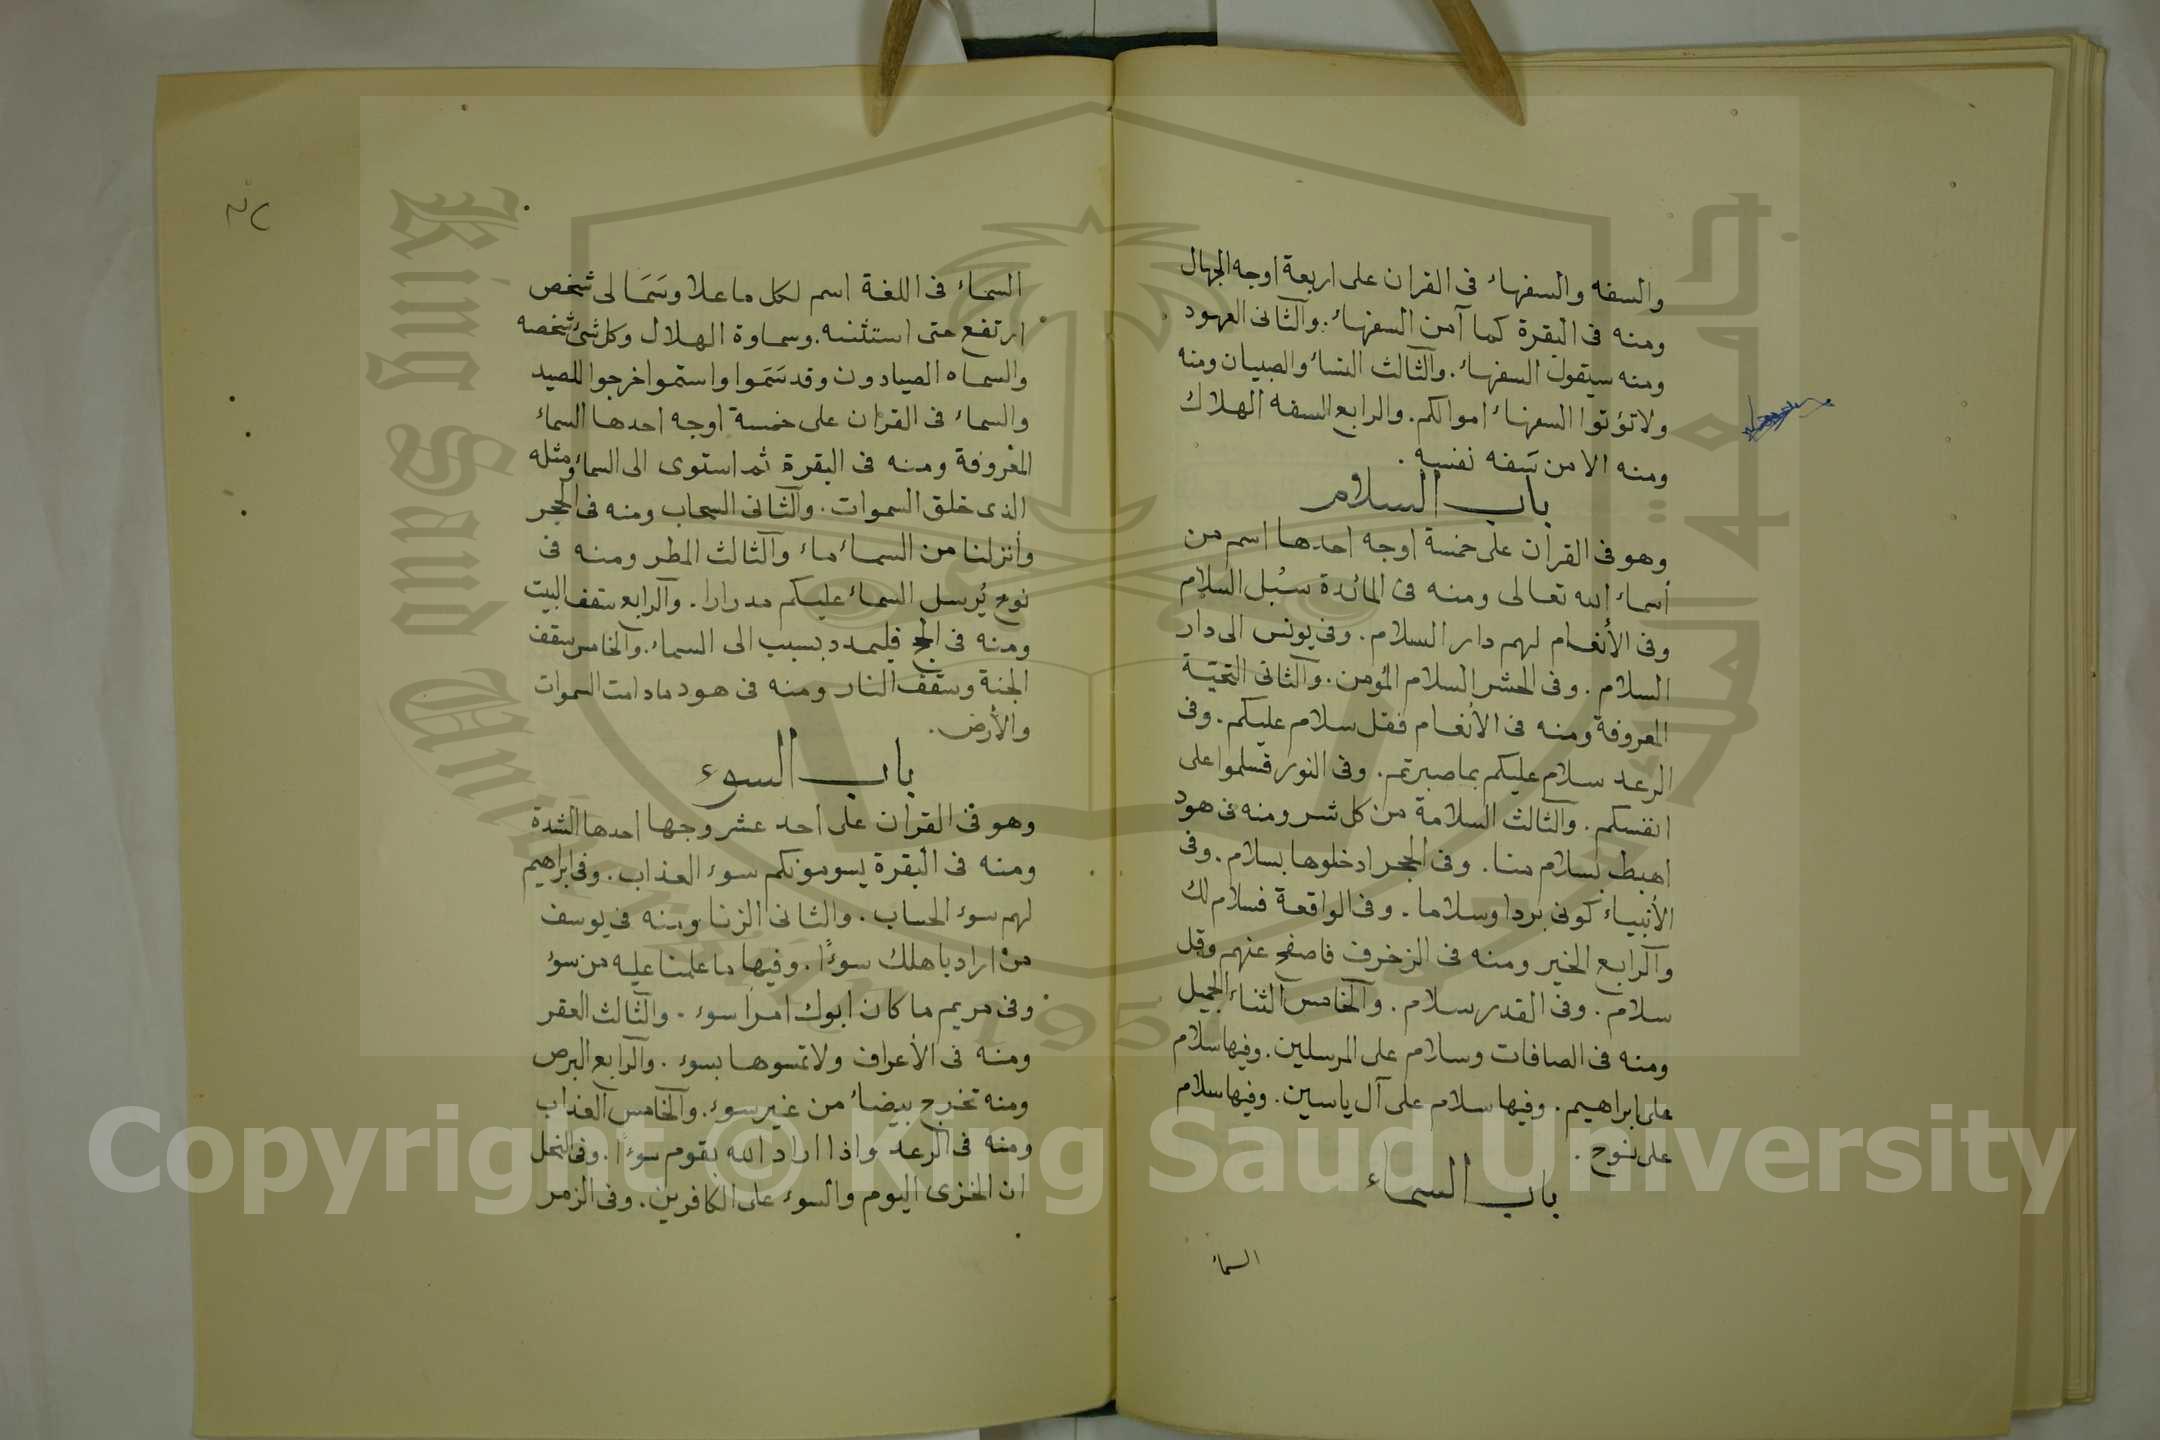 والسفه والسفهاء فى القران على اربعة اوجه الجهال
ومنه فى البقرة كما آمن السفهاء. والثانى اليهود
ومنه سيقول السفهاء. والثالث النساء والصبيان ومنه
ولا تؤتوا السفهاء اموالكم. والرابع السفه الهلاك
ومنه الا من سَفه نفسه.
باب السلام
وهو فى القرأن على خمسة اوجه احدها اسم من
أسماء الله تعالى ومنه فى المائدة سُبل السلام
وفى الأنعام لهم دار السلام. وفى يونس الى دار
السلام. وفى الحشر السلام المؤمن. والثانى التحية
المعروفة ومنه فى الأنعام فقل سلام عليكم. وفى
الرعد سلام عليكم بما صبرتم. وفى النور فسلموا على
انفسكم. والثالث السلامة من كل شر ومنه فى هود
اهبط بسلام منا. وفى الحجر ادخلوها بسلام. وفى
الأنبياء كونى بردا وسلاما. وفى الواقعة فسلام لك
والرابع الخير ومنه فى الزخرف فاصفح عنهم وقل
سلام. وفى القدر سلام. والخامس الثناء الجميل
ومنه فى الصافات وسلام على المرسلين. وفيها سلام
على ابراهيم. وفيها سلام على آل ياسين. وفيها سلام
على نوح.
باب السماء
السماء
السماء فى اللغة اسم لكل ما علا وسَمَا لى شخص
ارتفع حتى استثنته. وسماوة الهلال وكل شئ شخصه
والسماه الصيادون وقد سَمَوا واستموا خرجوا للصيد
والسماء فى القرأن على خمسة اوجه احدها السماء
المعروفة ومنه فى البقرة ثم استوى الى السماء ومثله
الذى خلق السموات. والثانى السحاب ومنه فى الحجر
وأنزلنا من السماء ماء والثالث المطر ومنه فى
نوح يُرسل السماء عليكم مدرارا. والرابع سقف البيت
ومنه فى الحج فليمدد بسبب الى السماء. والخامس سقف
الجنة وسقف النار ومنه فى هود مادامت السموات
والأرض.
باب السوء
وهو فى القرأن على احد عشر وجها احدها الشدة
ومنه فى البقرة يسومونكم سوء العذاب. وفى ابراهيم
لهم سوء الحساب. والثانى الزنا ومنه فى يوسف
من اراد باهلك سوءًا. وفيها ما علمنا عليه من سوء
وفى مريم ما كان ابوك امرأ سوء. والثالث العقر
ومنه فى الأعراف ولا تمسوها بسوء. والرابع البرص
ومنه تخرج بيضاء من غير سوء. والخامس العذاب
ومنه فى الرعد واذا اراد الله بقوم سوءًا. وفى النحل
ان الخزى اليوم والسوء على الكافرين. وفى الزمر
King Saud University
جامعة الملك سعود
1957
Copyright © King Saud University